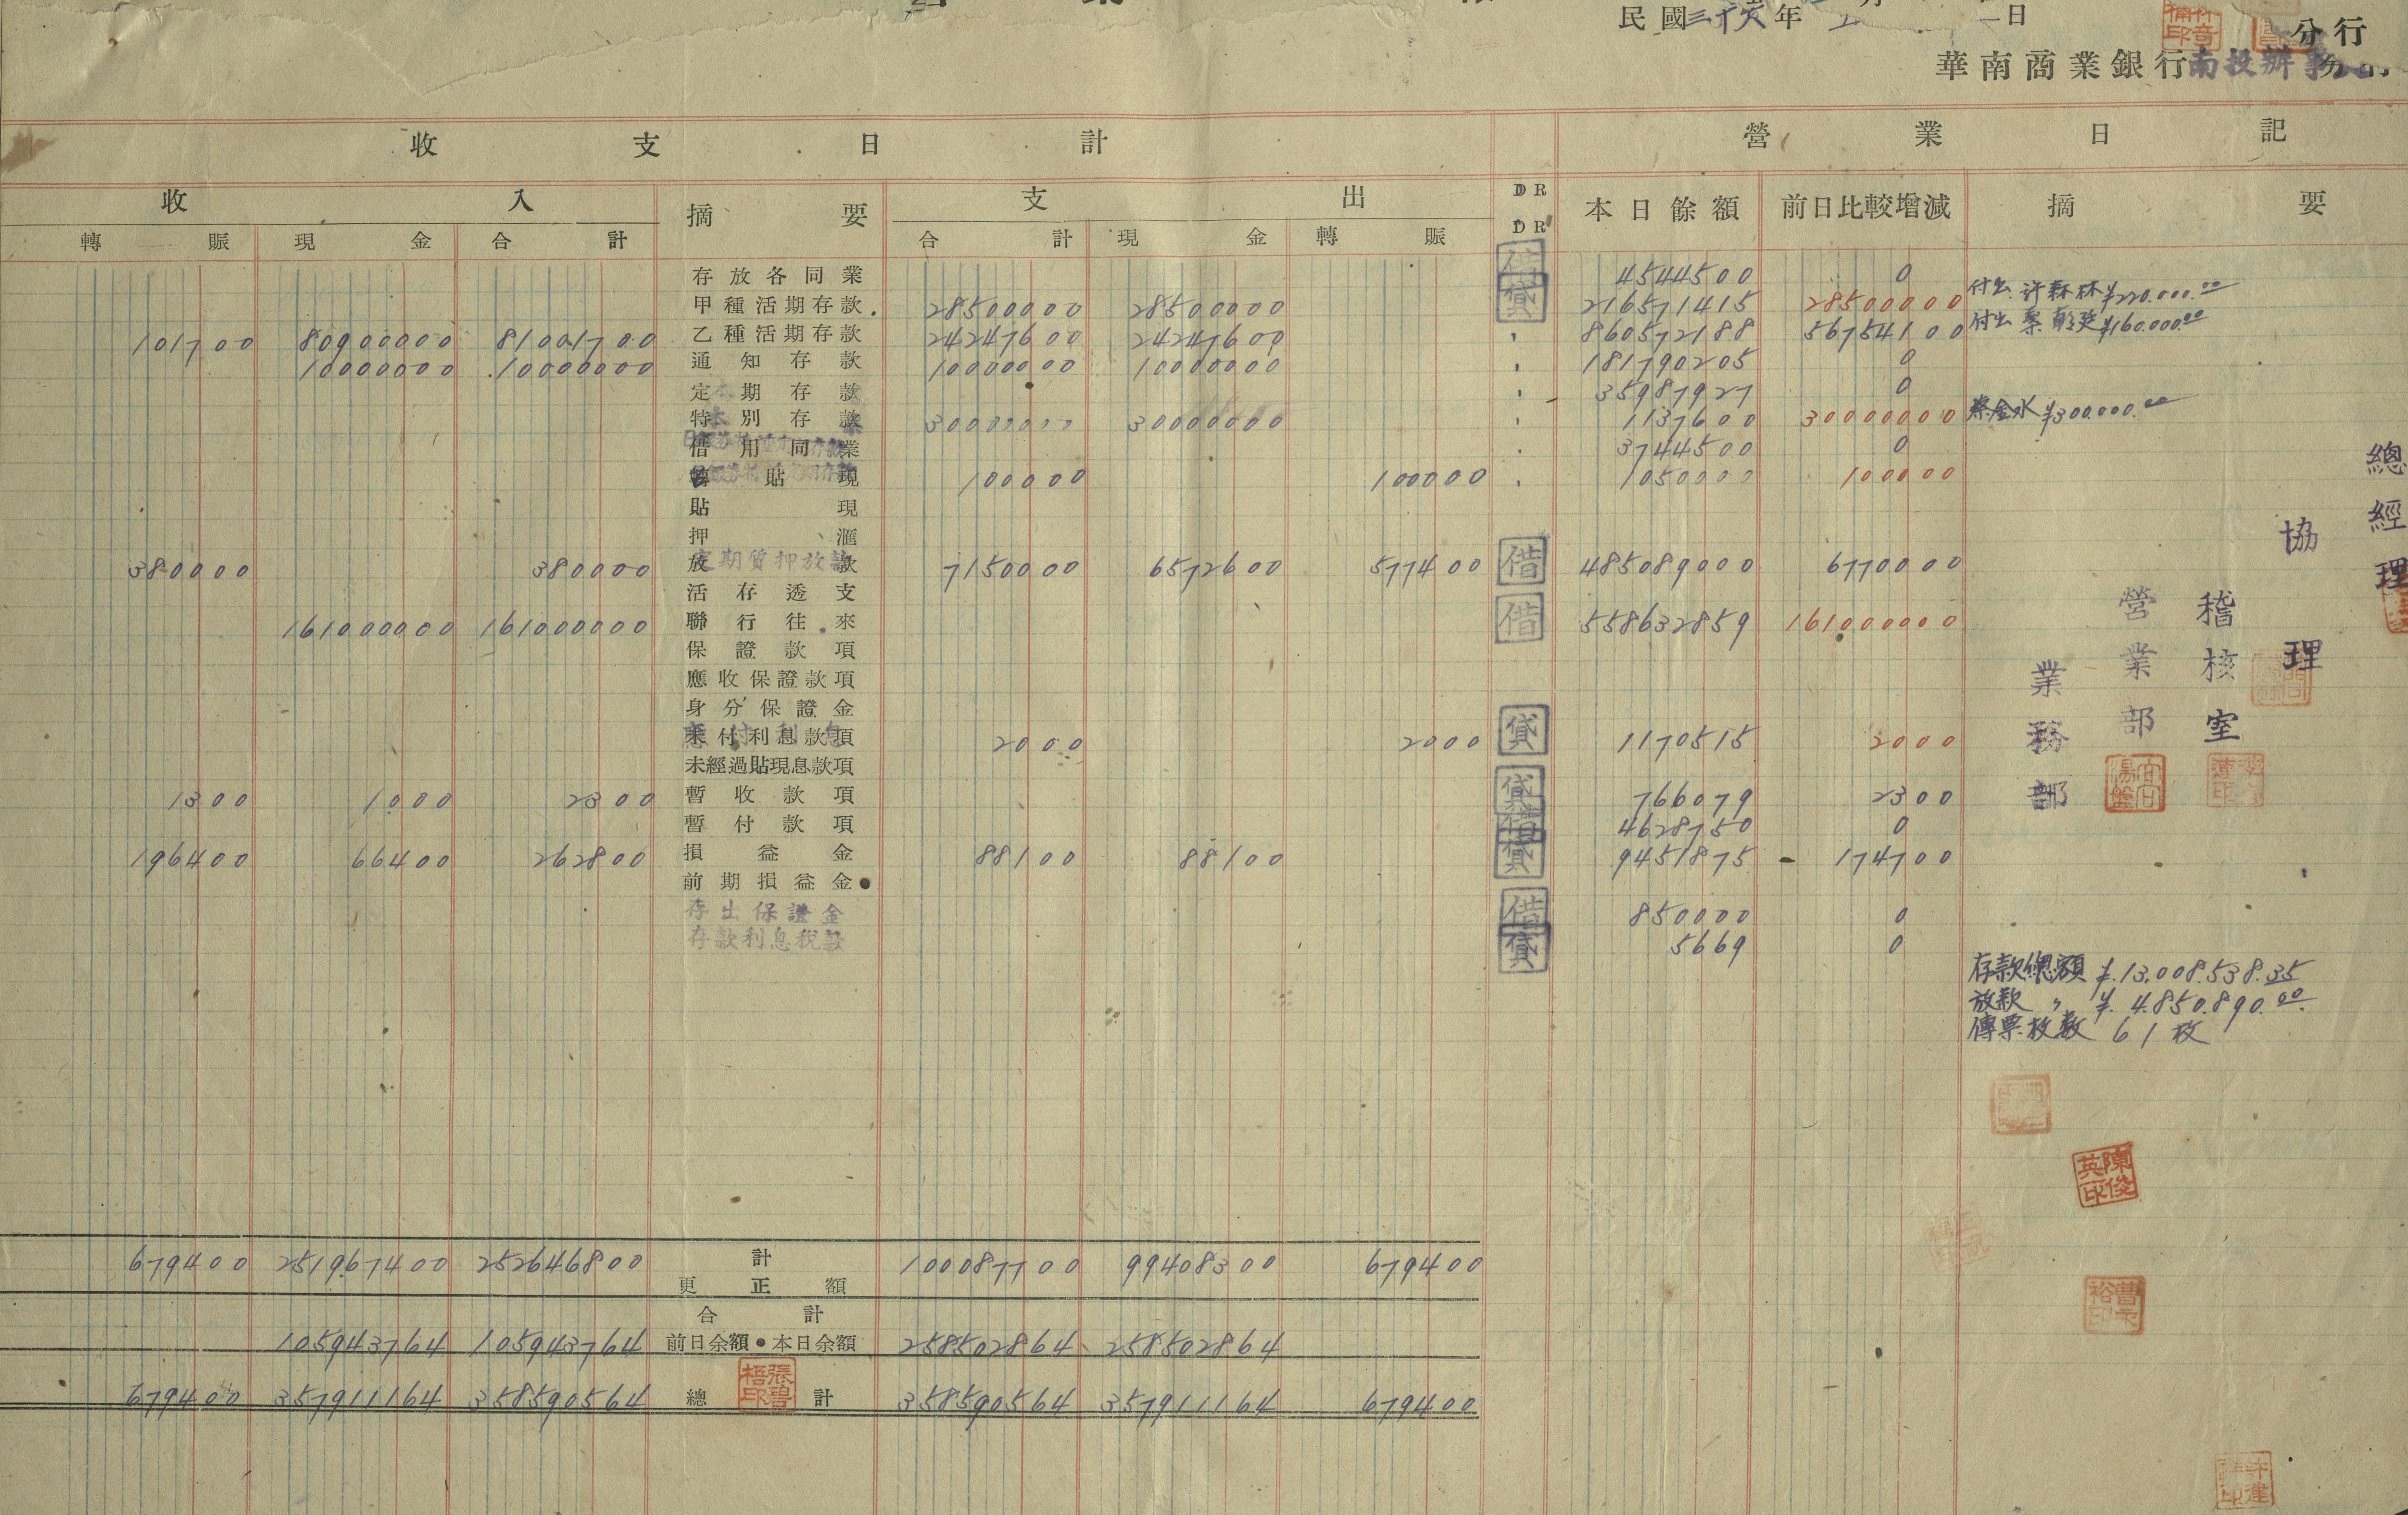 民國三十六年 日
分行
華南商業銀行南投辦事
收支日計 營業日記
收入 摘要 支出 DR 本日餘額 前日比較增減 摘要
轉賬 現金 合計 合計 現金 轉賬 DR
存放各同業 借 4544500 0
甲種活期存款 28500000 28500000 貸 216571415 28500000 付出 許森林 ¥220.000.00
101700 80900000 81001700 乙種活期存款 24247600 24247600 〃 860572188 56754100 付出 ¥160.000.00
10000000 10000000 通知存款 10000000 10000000 〃 181790205 0
定期存款 〃 35987927 0
特別存款 30000000 30000000 〃 1137600 30000000 蔡金水 ¥300.000.00
借用同業 〃 3744500 0
轉貼現 100000 100000 〃 1050000 100000
貼現
押滙
380000 380000 放款 定期質押放款 7150000 6572600 577400 借 485089000 6770000
活存透支
161000000 161000000 聯行往來 借 558632859 161000000
保證款項
應收保證款項
身分保證金
未付利息款項 應付利息 2000 2000 貸 1170515 2000
未經過貼現息款項
1300 1000 2300 暫收款項 貸 766079 2300
暫付款項 借 4628750 0
196400 66400 262800 損益金 88100 88100 貸 9451875 174700
前期損益金
存出保證金 借 850000 0
存款利息稅款 貸 5669 0
總經理
協理
稽核室
營業部
業務部
存款總額 ¥.13.008.538.35
放款 〃 ¥. 4.850.890.00
傳票枚數 61枚
陳俊英印
679400 251967400 252646800 計 100087700 99408300 679400
更正額
合計
105943764 105943764 前日余額・本日余額 258502864 258502864
679400 357911164 358590564 總計 358590564 357911164 679400
張碧梧印